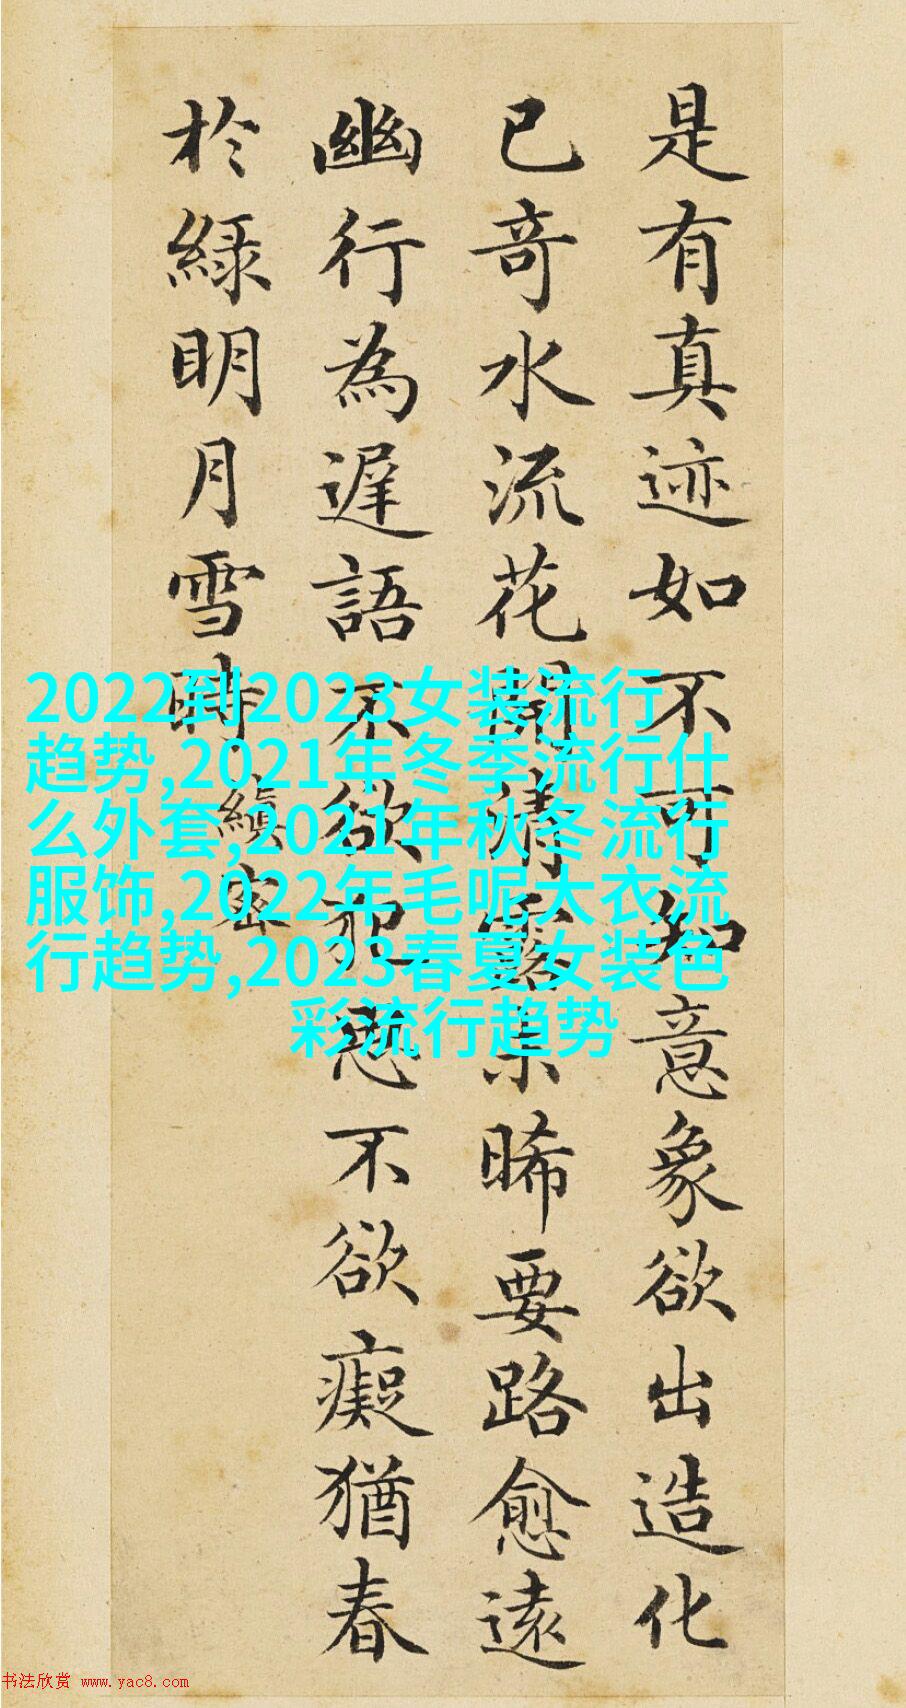 是有真迹如不可知意象欲出造化
已奇水流花開清露未晞要路愈遠
幽行為遲語不欲犯思不欲癡猶春
於綠明月雪時 縝密
2022到2023女装流行
趋势,2021年冬季流行什
么外套,2021年秋冬流行
服饰,2022年毛呢大衣流
行趋势,2023春夏女装色
彩流行趋势
书法欣赏 www.yac8.com